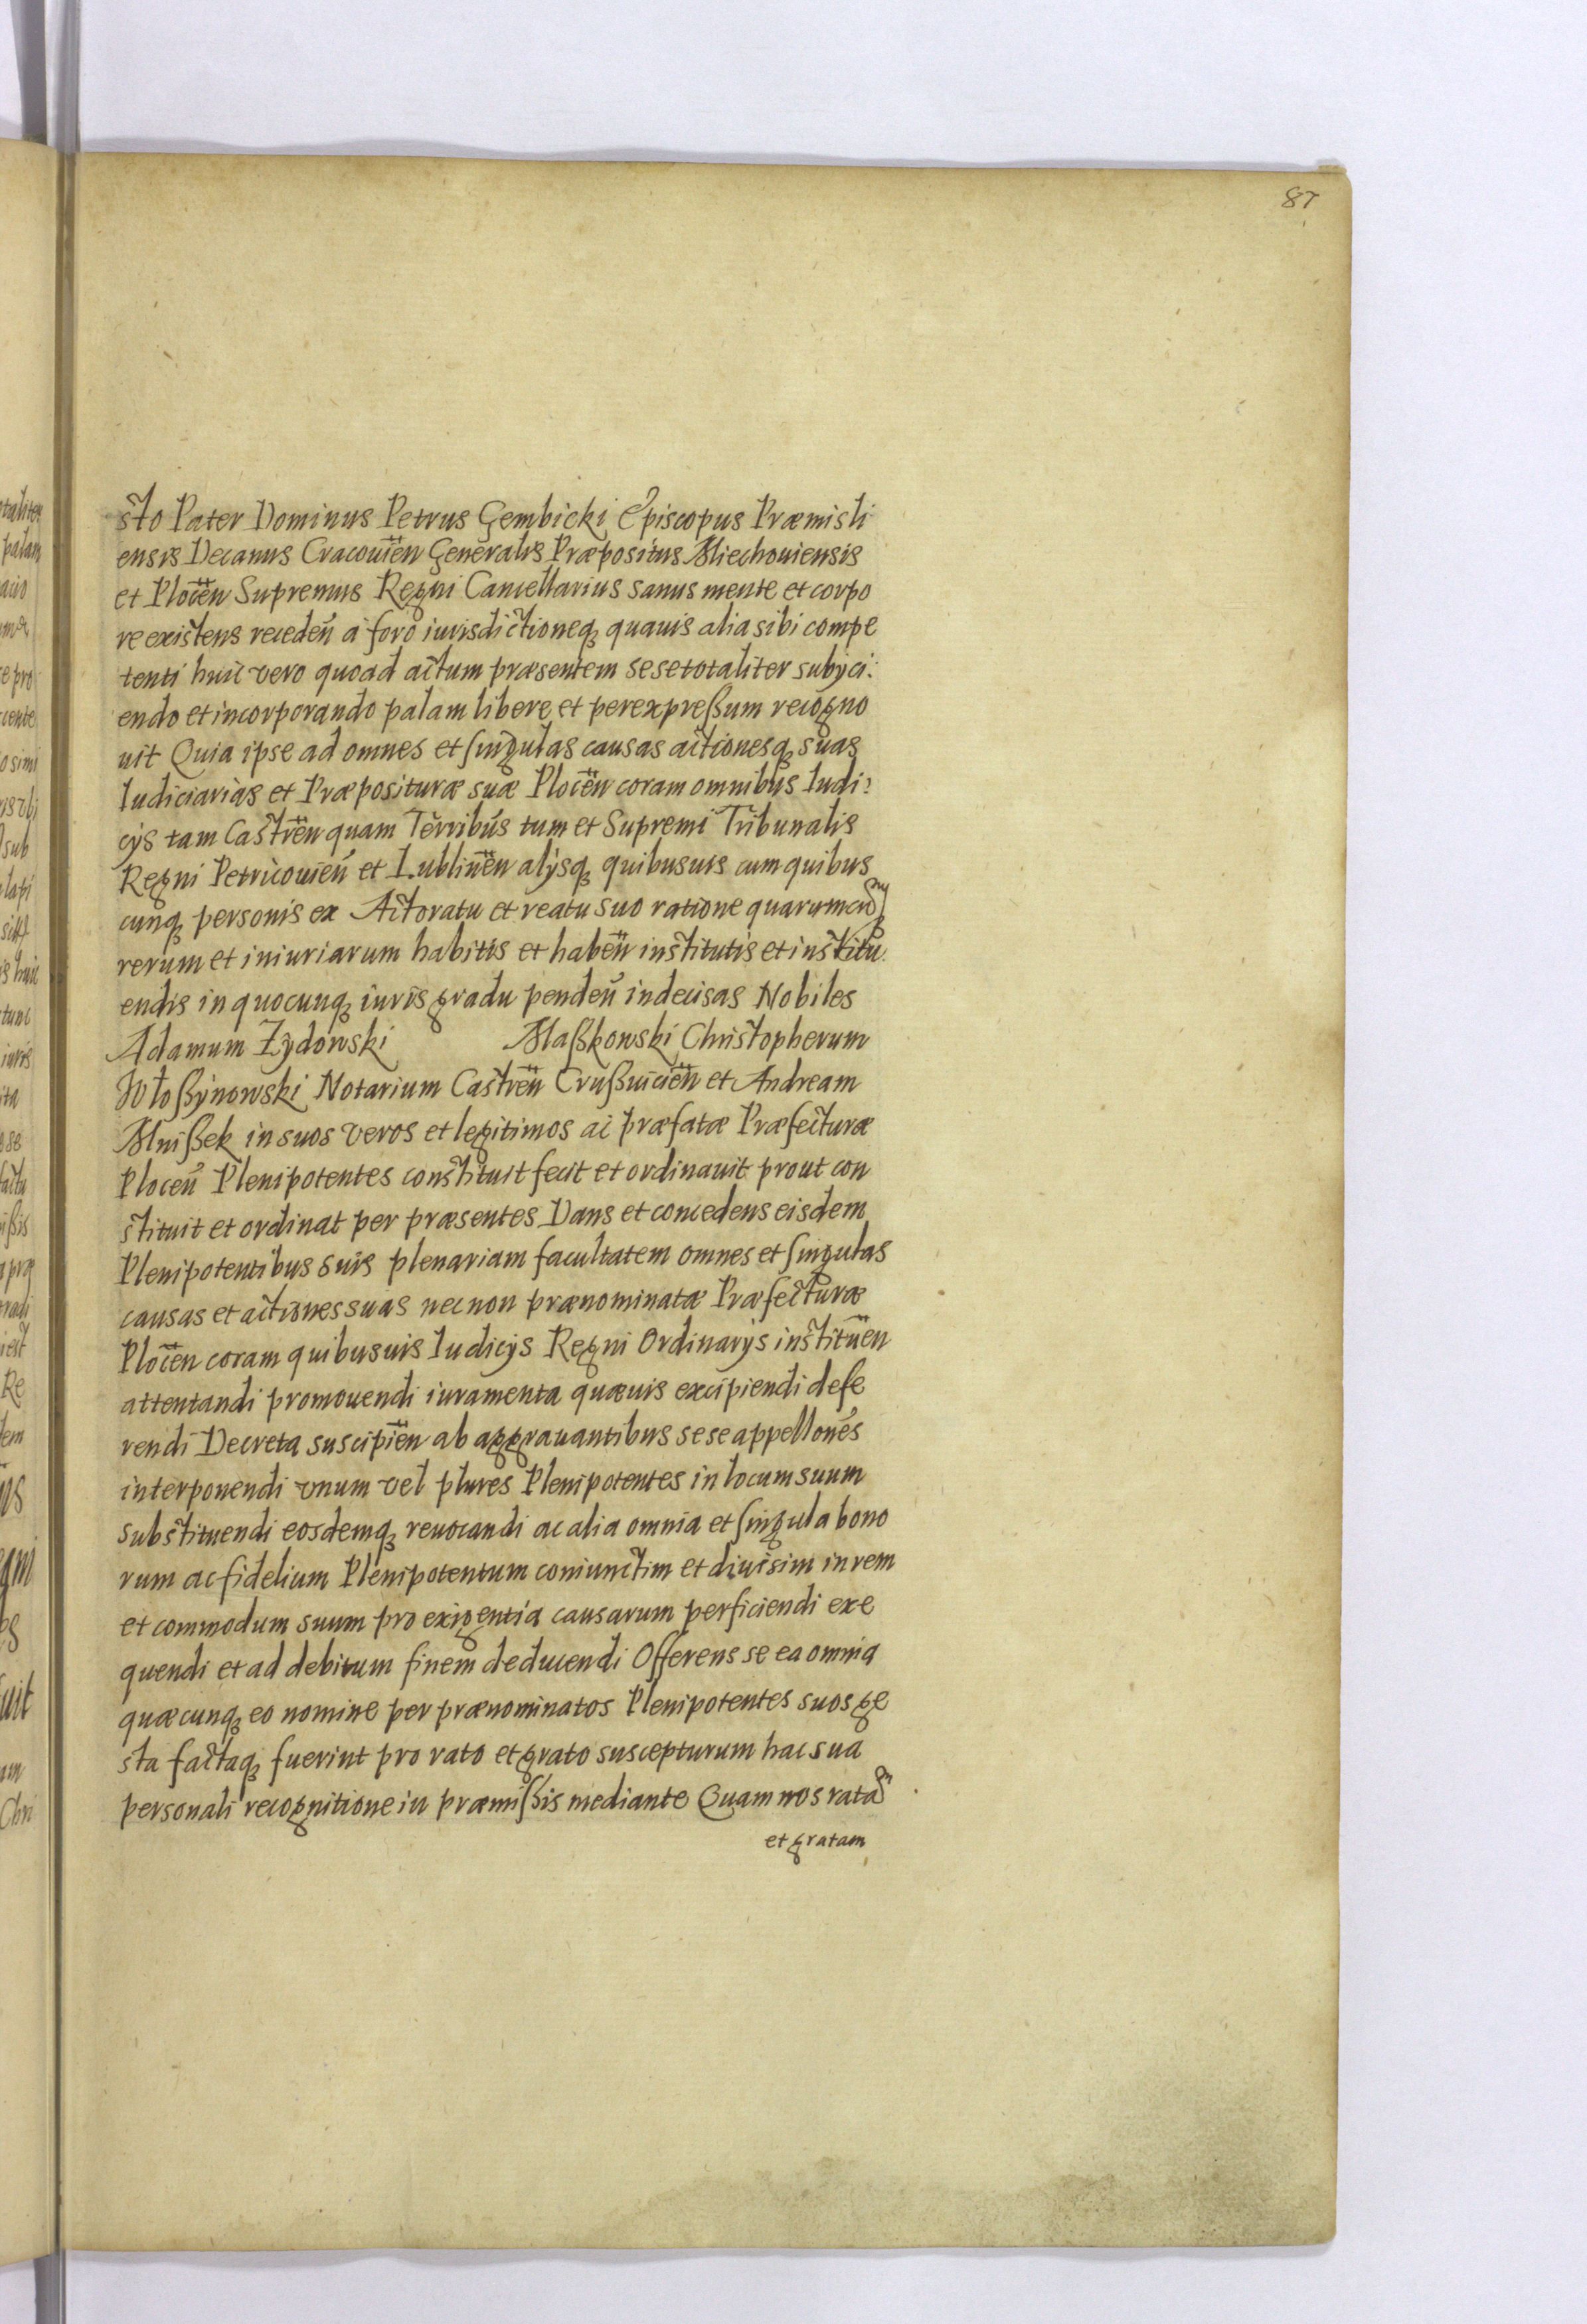 87
sto Pater Dominus Petrus Gembicki Episcopus Præmisli
ensis Decanus Cracouień Generalis Præpositus Miechouiensis
et Płoceń Supremus Regni Cancellarius sanus mente et corpo
re existens recedeń a foro iurisdictioneq quauis alia sibi compe
tenti huic vero quoad actum præsentem sese totaliter subÿci:
endo et incorporando palam libere et per expreßum recogno
uit Quia ipse ad omnes et singulas causas actionesq suas
Iudiciarias et Præposituræ suæ Płoceń coram omnibus Iudi:
cÿs tam Castreń quam Terribús tum et Supremi Tribunalis
Regni Petricouień et Lublineń alÿsq quibusuis cum quibus
cunq personis ex Actoratu et reatu suo ratione quarumcūq
rerum et iniuriarum habitis et habeń institutis et institu
endis in quocunq iuris gradu pendeń indecisas Nobiles
Adamum Zydowski Maßkowski Christopherum
Włoßÿnowski Notarium Castreń Crußuicień et Andream
Mnißek in suos veros et legitimos ac præfatæ Præfecturæ
Płoceń Plenipotentes constituit fecit et ordinauit prout con
stituit et ordinat per præsentes Dans et concedens eisdem
Plenipotentibus suis plenariam facultatem omnes et singulas
causas et actiones suas necnon prænominatæ Præfecturæ
Płoceń coram quibusuis Iudicÿs Regni Ordinarÿs instituēn
attentandi promouendi iuramenta quæuis excipiendi defe
rendi Decreta suscipień ab aggrauantibus sese appellonēs
interponendi vnum vel plures Plenipotentes in locum suum
substituendi eosdemq reuocandi ac alia omnia et singula bono
rum ac fidelium Plenipotentum coniunctim et diuisim in rem
et commodum suum pro exigentia causarum perficiendi exe
quendi et ad debitum finem deducendi Offerens se ea omnia
quæcunq eo nomine per prænominatos Plenipotentes suos ge
sta factaq fuerint pro rato et grato suscepturum hac sua
personali recognitione in præmißis mediante Quam nos ratā
et gratam